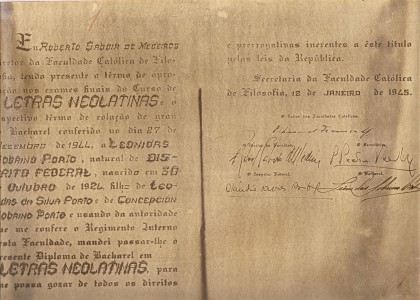 Eu ROBERTO SABOIA DE MEDEIROS
diretor da Faculdade Católica de Filo-
sofia, tendo presente o têrmo de apro-
vação nos exames finais do Curso de
LETRAS NEOLATINAS e o
respectivo têrmo de colação de grau
Bacharel conferido no dia 27 de
DEZEMBRO de 1944, a LEONIDAS
SOBRINO PORTO, natural de DIS-
TRITO FEDERAL, nascido em 30
OUTUBRO de 1924 filho de LEO-
NIDAS DA SILVA PORTO e de CONCEPCION
SOBRINO PORTO e usando da autoridade
que me confere o Regimento Interno
desta Faculdade, mandei passar-lhe o
presente Diploma de Bacharel em
LETRAS NEOLATINAS, para
que possa gozar de todos os direitos
e prerrogativas inerentes a êste título
pelas leis da República.
Secretaria da Faculdade Católica
de Filosofia, 12 de JANEIRO de 1945.
O Reitor das Faculdades Católicas,